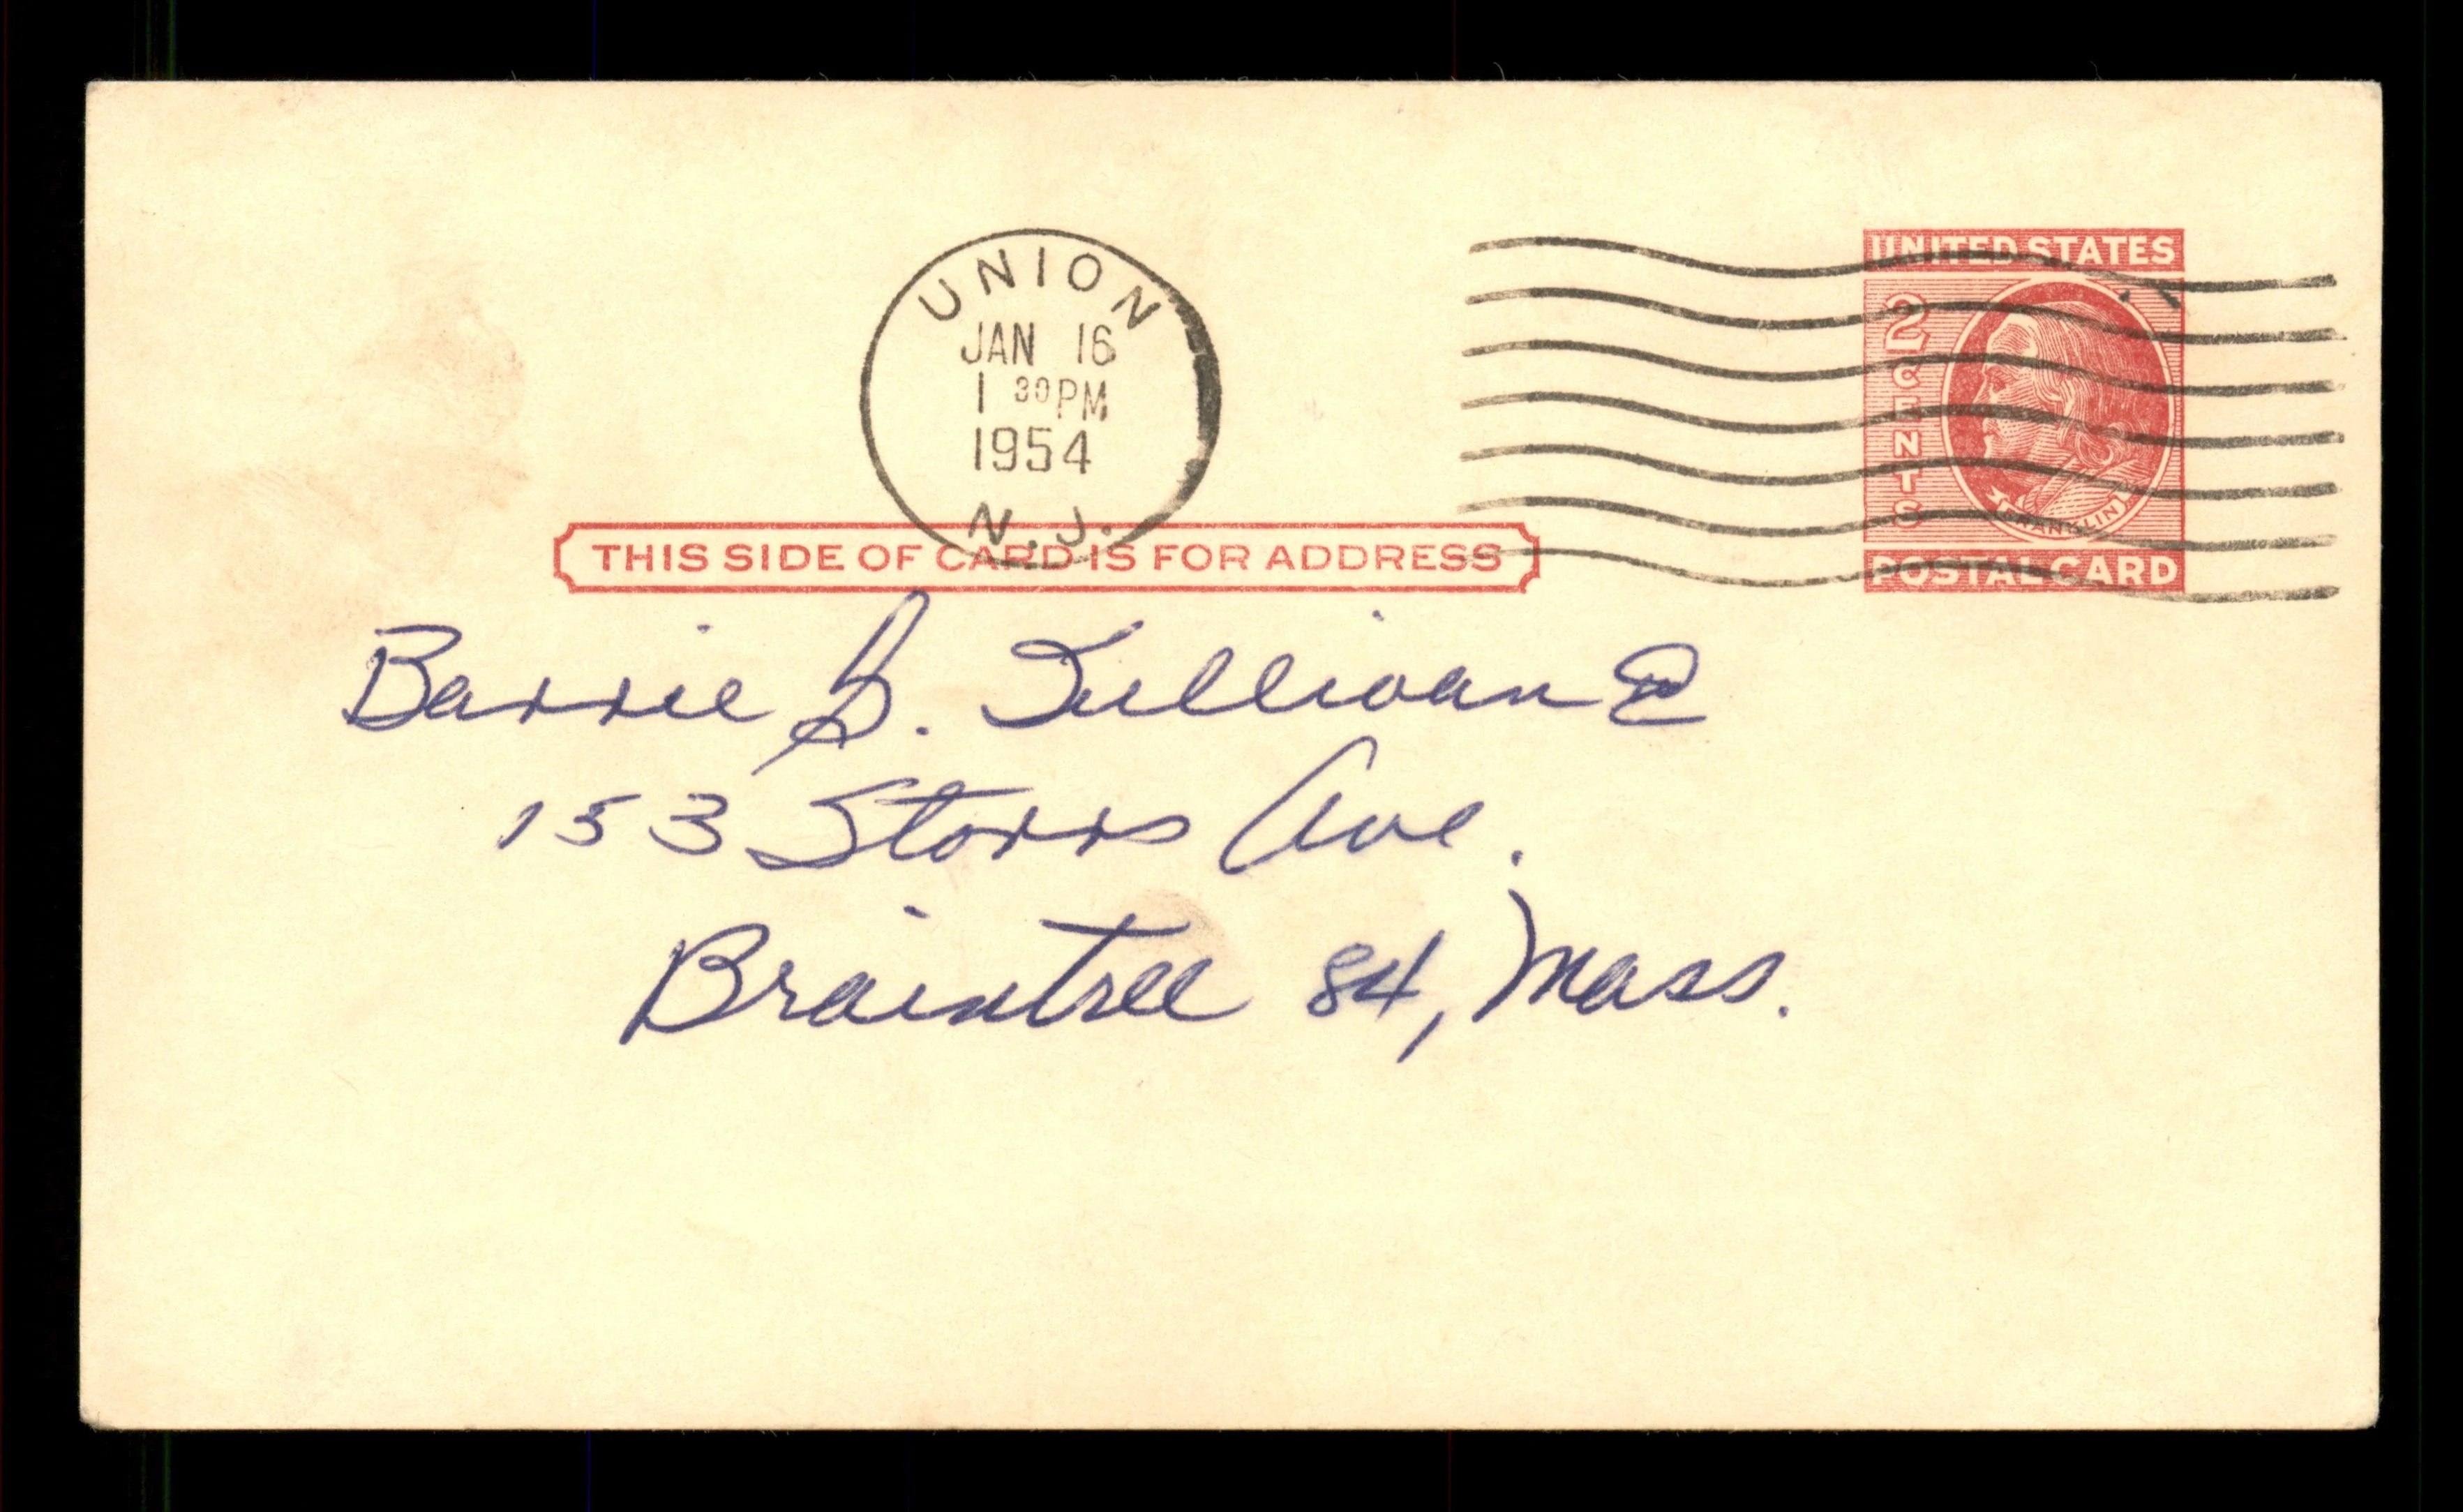 UNION
JAN 16
1 30 PM
1954
N.J.
UNITED STATES
2 CENTS
FRANKLIN
POSTAL CARD
THIS SIDE OF CARD IS FOR ADDRESS
Barrie S. Sullivan
153 Storrs Ave.
Braintree 84, Mass.